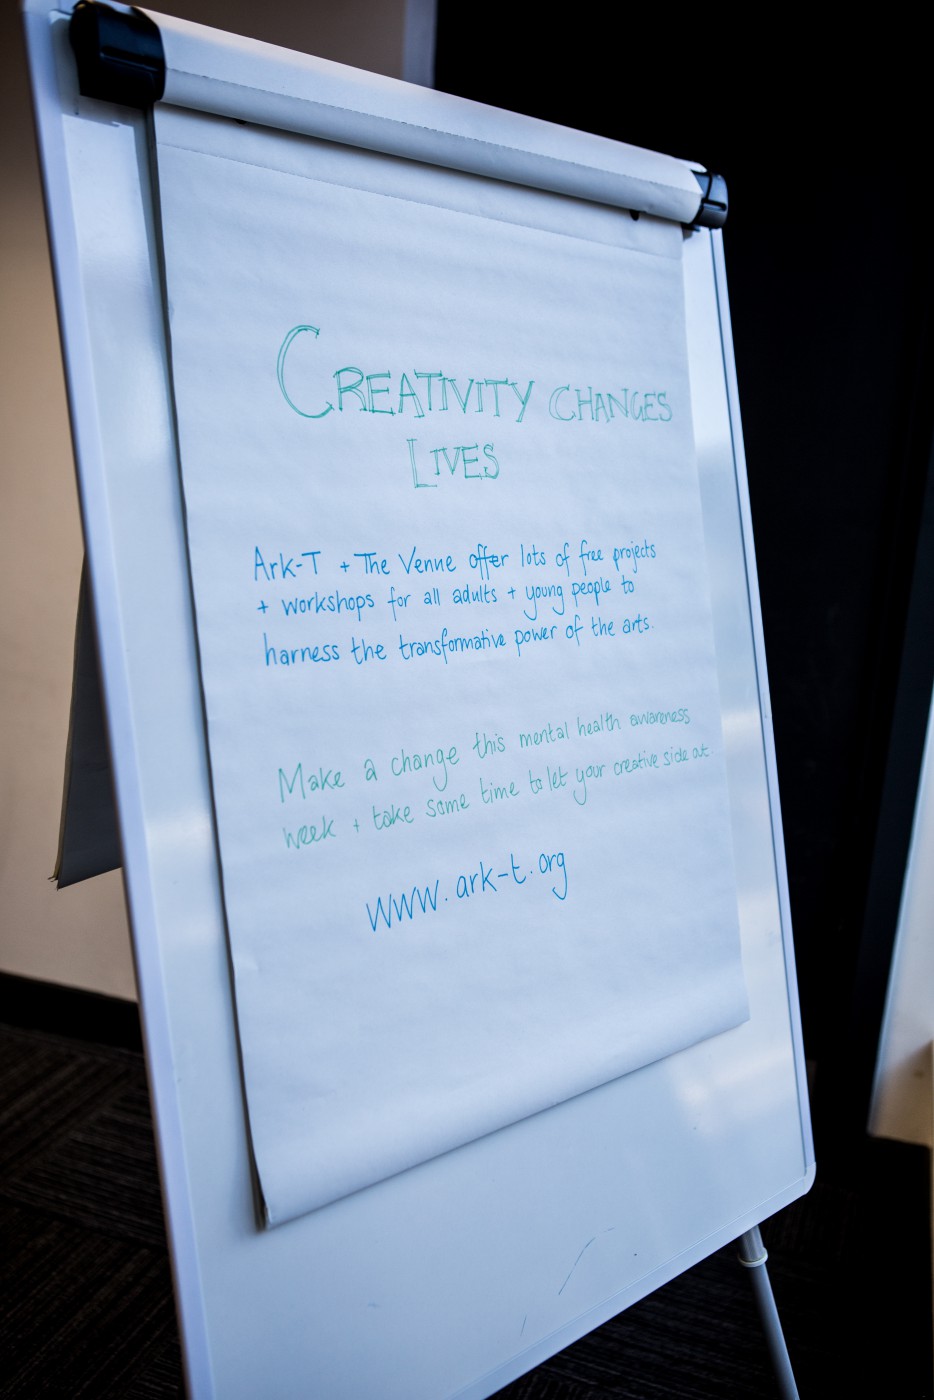 CREATIVITY CHANGES
LIVES
Ark-T + The Venue offer lots of free projects
+ workshops for all adults + young people to
harness the transformative power of the arts.
Make a change this mental health awareness
week + take some time to let your creative side out.
www.ark-t.org